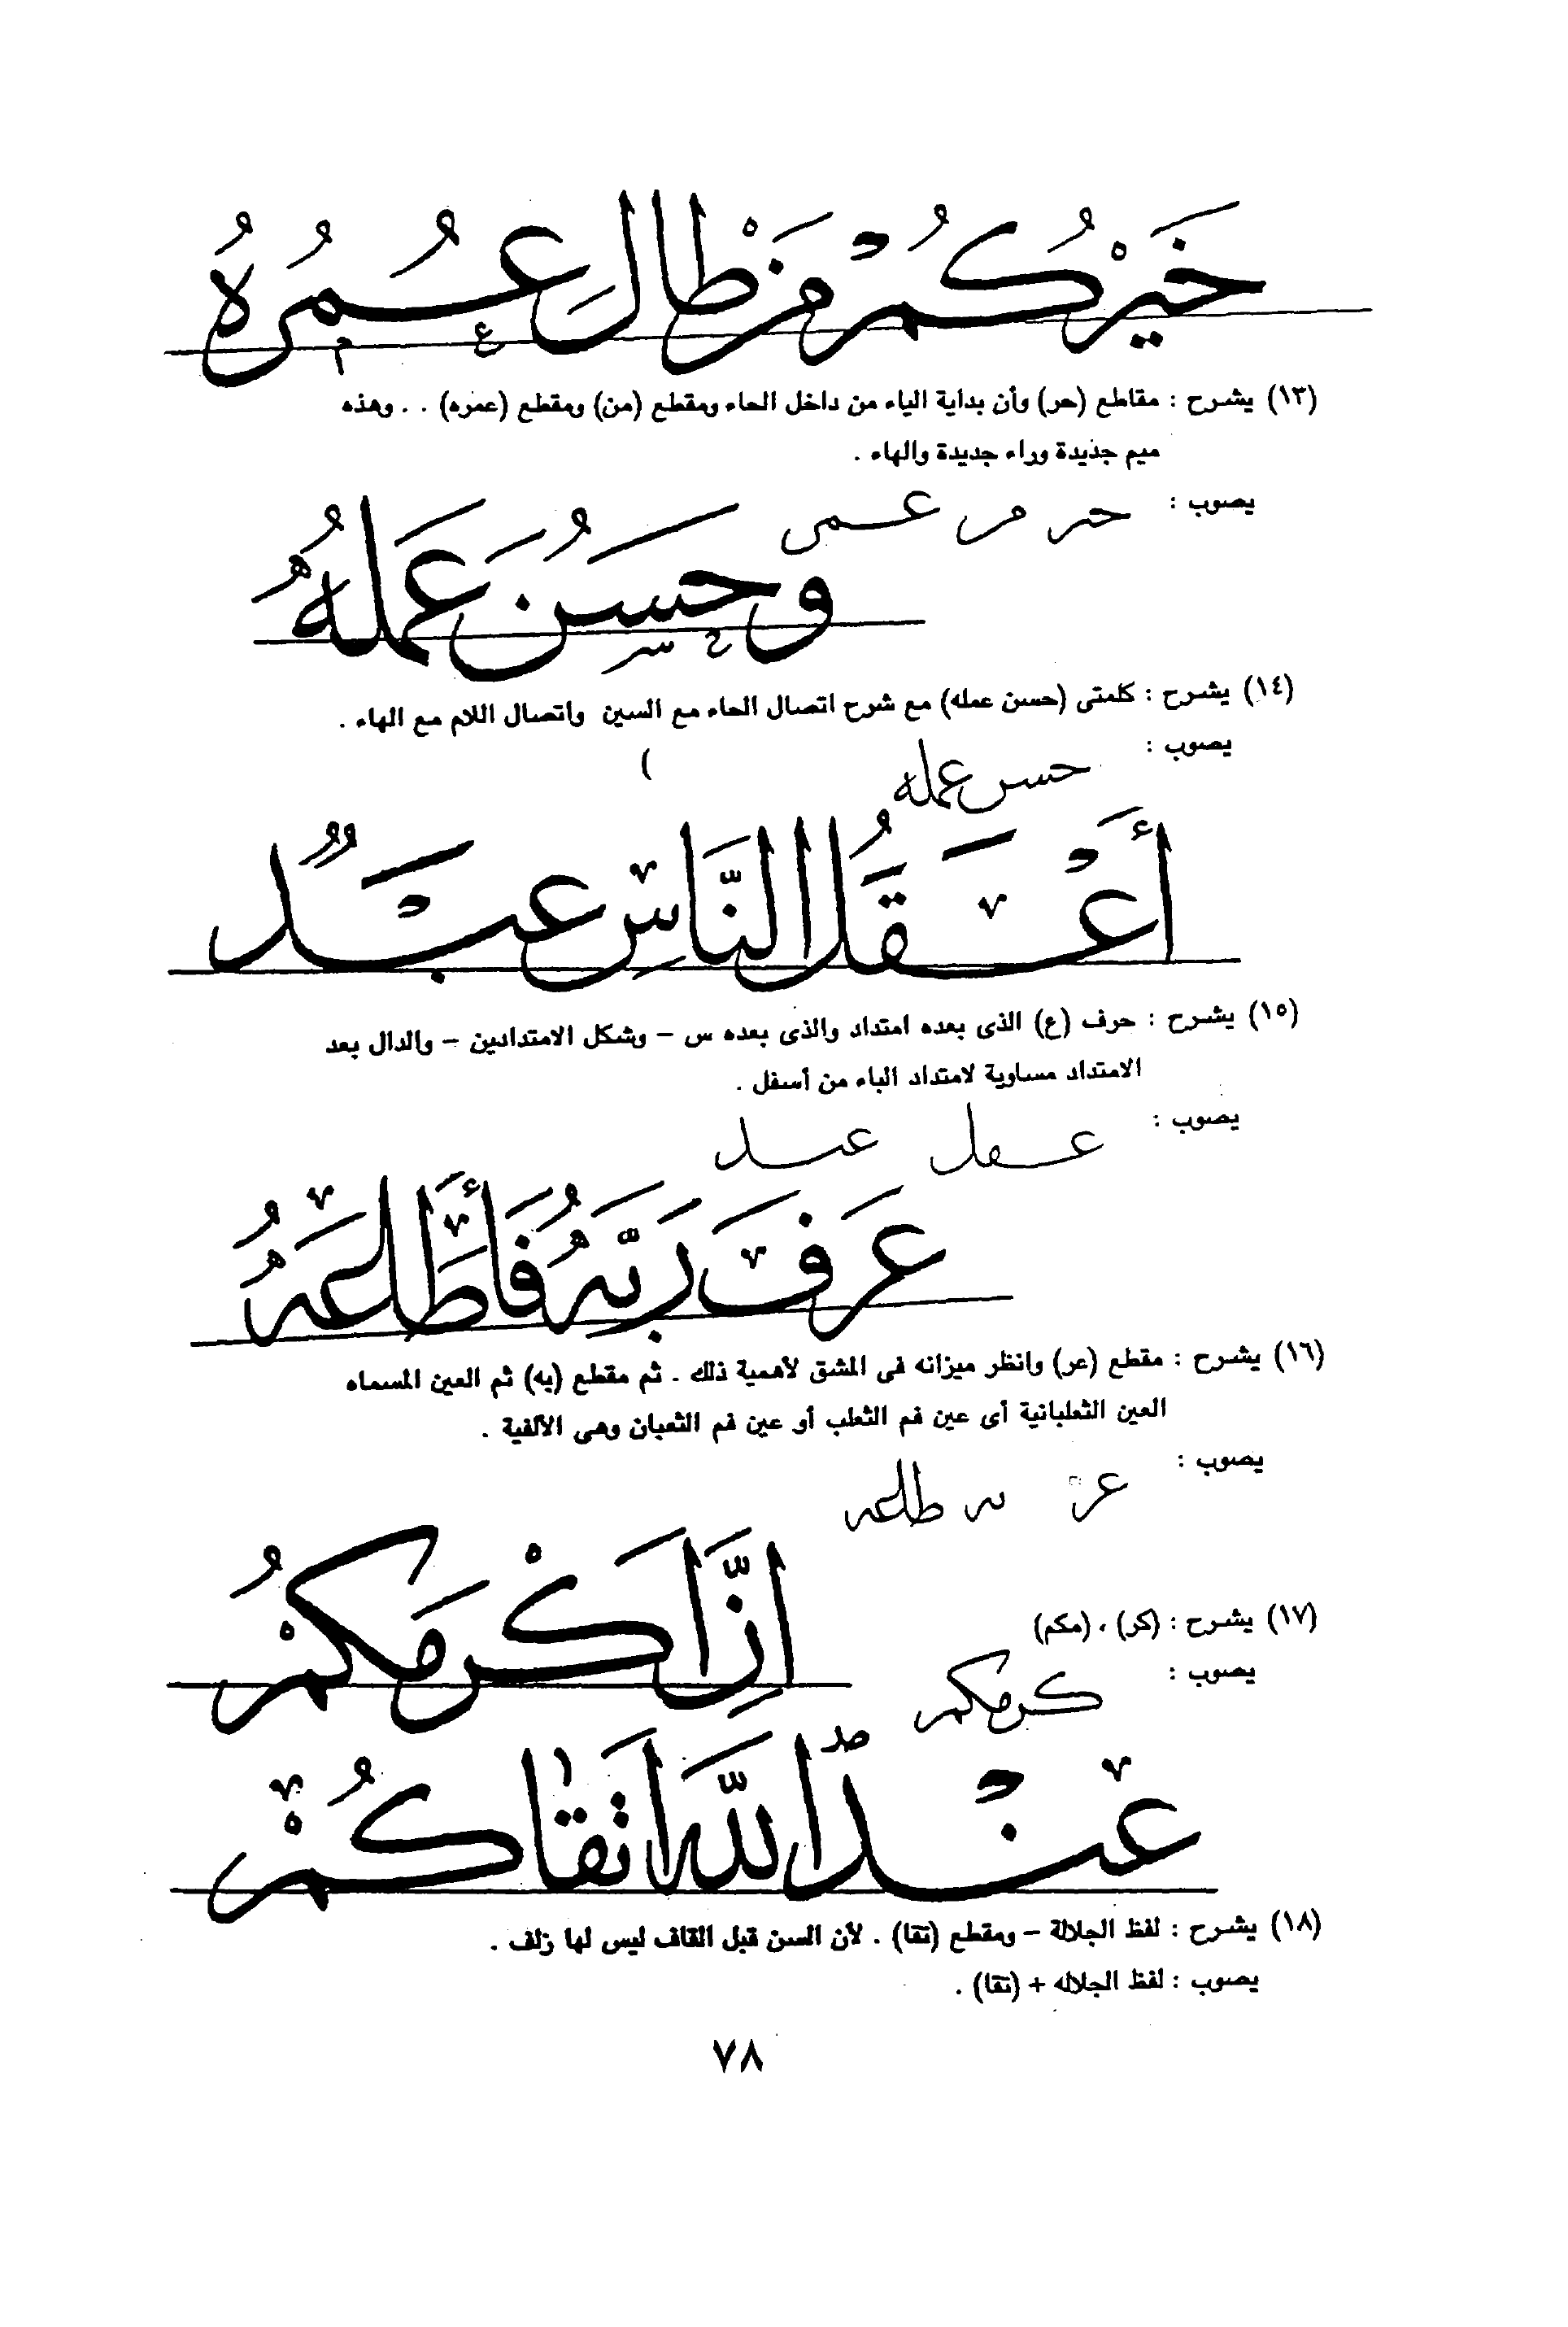 خَيْرُكُمْ مَنْ طَالَ عُمُرُهُ
ع م
(١٣) يشرح : مقاطع (حر) وأن بداية الياء من داخل الحاء ومقطع (من) ومقطع (عمره) . . وهذه
ميم جديدة وراء جديدة والهاء .
يصوب : حىر مں عمى
وَحَسُنَ عَمَلُهُ
ح سر
(١٤) يشرح : كلمتى (حسن عمله) مع شرح اتصال الحاء مع السين واتصال اللام مع الهاء .
يصوب : حسں عمله
أَعْقَلُ النَّاسِ عَبْدٌ
(١٥) يشرح : حرف (ع) الذى بعده امتداد والذى بعده س – وشكل الامتدادين – والدال بعد
الامتداد مساوية لامتداد الباء من أسفل .
يصوب : عڡل عٮد
عَرَفَ رَبَّهُ فَأَطَاعَهُ
(١٦) يشرح : مقطع (عر) وانظر ميزانه فى المشق لأهمية ذلك . ثم مقطع (به) ثم العين المسماه
العين الثعلبانية أى عين فم الثعلب أو عين فم الثعبان وهى الألفية .
يصوب : عر ٮه طاعه
إِنَّ أَكْرَمَكُمْ
(١٧) يشرح : (كر) ، (مكم)
يصوب : كرمكم
عِنْدَ اللّٰهِ اَتْقَاكُمْ
(١٨) يشرح : لفظ الجلالة – ومقطع (تقا) . لأن السن قبل القاف ليس لها زلف .
يصوب : لفظ الجلاله + (تقا) .
٧٨